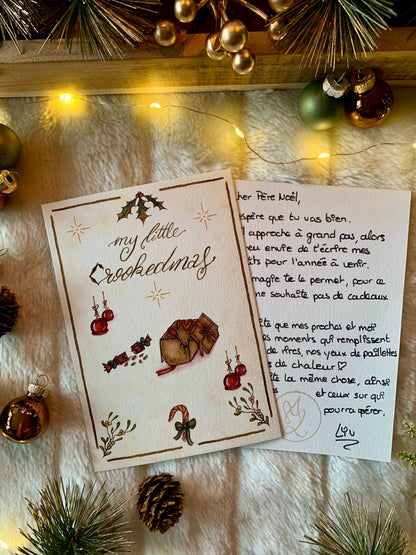 my little
Crookedmas
her Père Noël,
spère que tu vas bien.
l approche à grand pas, alors
peu envie de t'écrire mes
ts pour l'année à venir.
magie te le permet, pour ce
me souhaite pas de cadeaux
te que mes proches et moi
es moments qui remplissent
de rires, nos yeux de paillettes
s de chaleur
te la même chose, ainsi
et ceux sur qui
pourra opérer.
Liv